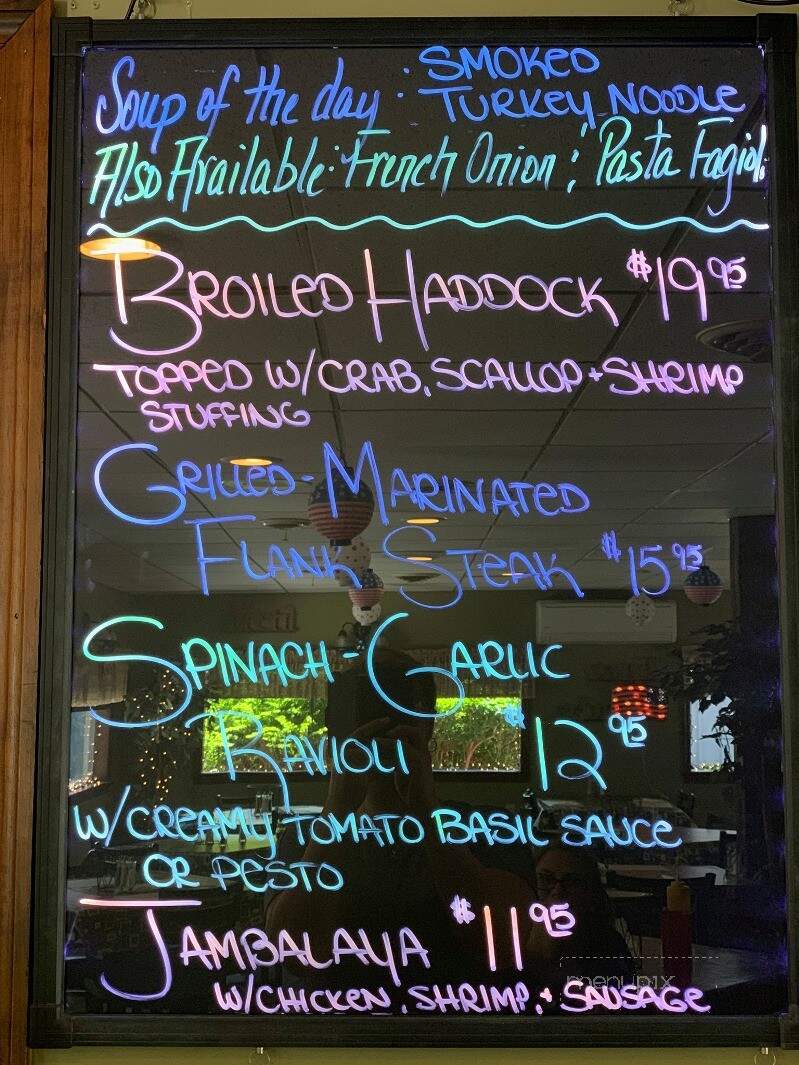 Soup of the day: SMOKED
TURKEY NOODLE
Also Available: French Onion ; Pasta Fagioli
BROILED HADDOCK $19.95
TOPPED W/CRAB, SCALLOP + SHRIMP
STUFFING
GRILLED-MARINATED
FLANK STEAK $15.95
SPINACH-GARLIC
RAVIOLI $12.95
W/CREAMY TOMATO BASIL SAUCE
OR PESTO
JAMBALAYA $11.95
W/CHICKEN, SHRIMP, + SAUSAGE
menupix